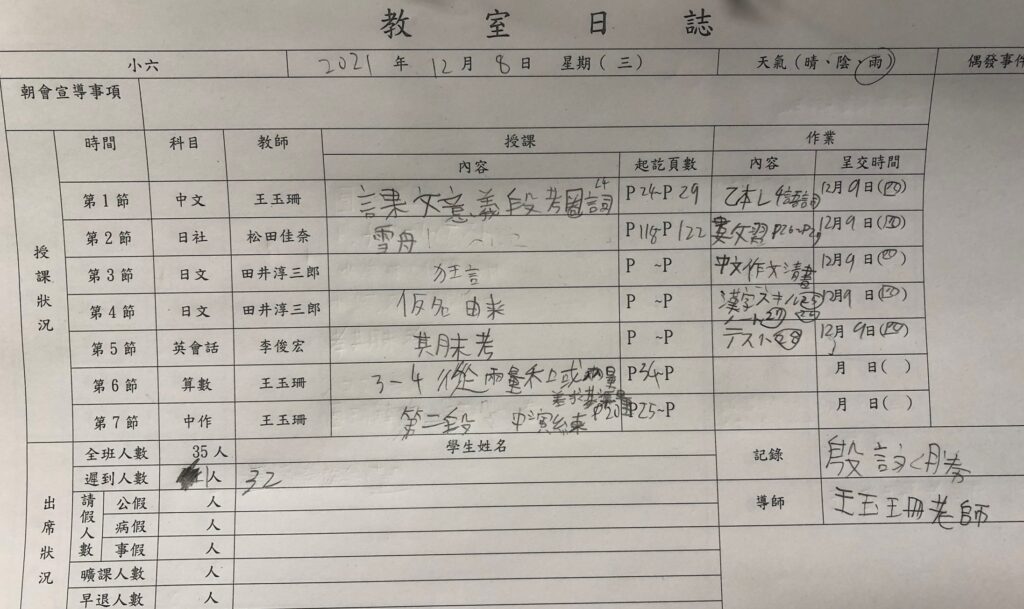 教室日誌
小六 2021年12月8日 星期(三) 天氣(晴、陰、雨) 偶發事件
朝會宣導事項
授課狀況
時間 科目 教師 授課 作業
內容 起訖頁數 內容 呈交時間
第1節 中文 王玉珊 課文意義段考圈詞 P24~P29 乙本L4 12月9日(四)
第2節 日社 松田佳奈 雪舟 P118~P122 英文習 12月9日(四)
第3節 日文 田井淳三郎 狂言 P ~P 中文作文清 12月9日(四)
第4節 日文 田井淳三郎 仮名 由来 P ~P 漢字スキル 12月9日(四)
ノート
第5節 英會話 李俊宏 其月末考 P ~P テスト 12月9日(四)
第6節 算數 王玉珊 3-4 從兩量和或 P34~P 月 日( )
第7節 中作 王玉珊 第二段 中演練 P20 P25~P 月 日( )
出席狀況
全班人數 35人 學生姓名
遲到人數 1人 32
請假人數
公假 人
病假 人
事假 人
曠課人數 人
早退人數 人
記錄 殷
導師 王玉珊老師